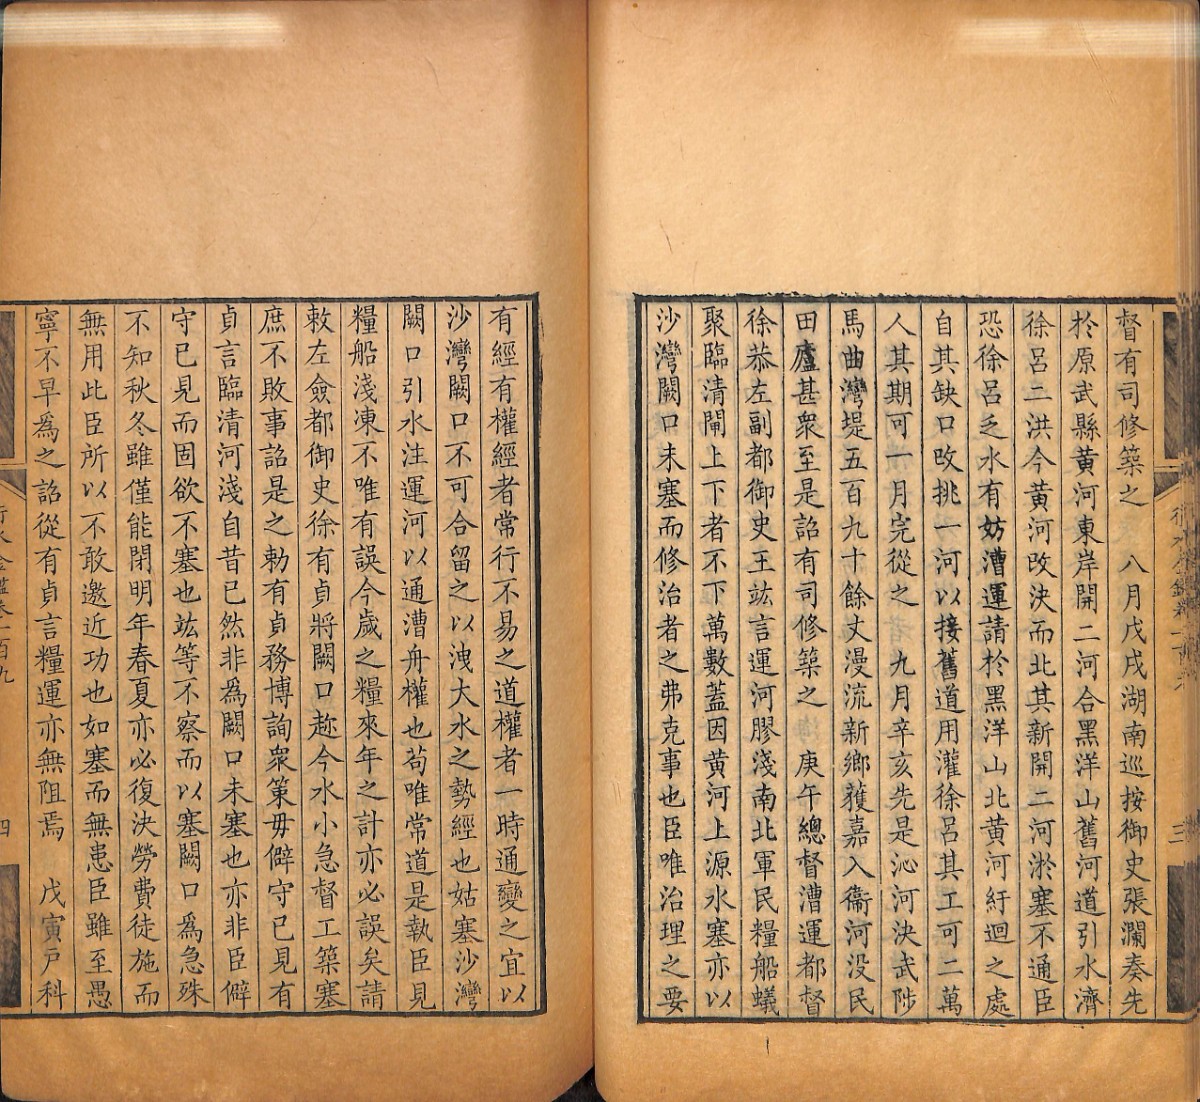 督有司修築之　八月戊戌湖南巡按御史張瀾奏先
於原武縣黄河東岸開二河合黑洋山舊河道引水濟
徐呂二洪今黄河改決而北其新開二河淤塞不通臣
恐徐呂乏水有妨漕運請於黑洋山北黄河紆迴之處
自其缺口改挑一河以接舊道用灌徐呂其工可二萬
人其期可一月完從之　九月辛亥先是沁河決武陟
馬曲灣堤五百九十餘丈漫流新鄉蒦嘉入衞河没民
田廬甚衆至是詔有司修築之　庚午總督漕運都督
徐恭左副都御史王竑言運河膠淺南北軍民糧船蟻
聚臨清閘上下者不下萬數蓋因黄河上源水塞亦以
沙灣闕口未塞而修治者之弗克事也臣唯治理之要
有經有權經者常行不易之道權者一時通變之宜以
沙灣闕口不可合留之以洩大水之勢經也姑塞沙灣
闕口引水注運河以通漕舟權也苟唯常道是執臣見
糧船淺凍不唯有誤今歲之糧來年之計亦必誤矣請
敕左僉都御史徐有貞將闕口趂今水小急督工築塞
庶不敗事詔是之勅有貞務博詢衆策毋僻守已見有
貞言臨清河淺自昔已然非爲闕口未塞也亦非臣僻
守已見而固欲不塞也竑等不察而以塞闕口爲急殊
不知秋冬雖僅能閉明年春夏亦必復決勞費徒施而
無用此臣所以不敢邀近功也如塞而無患臣雖至愚
寧不早爲之詔從有貞言糧運亦無阻焉　戊寅户科
行水金鑑卷一百九
四
三